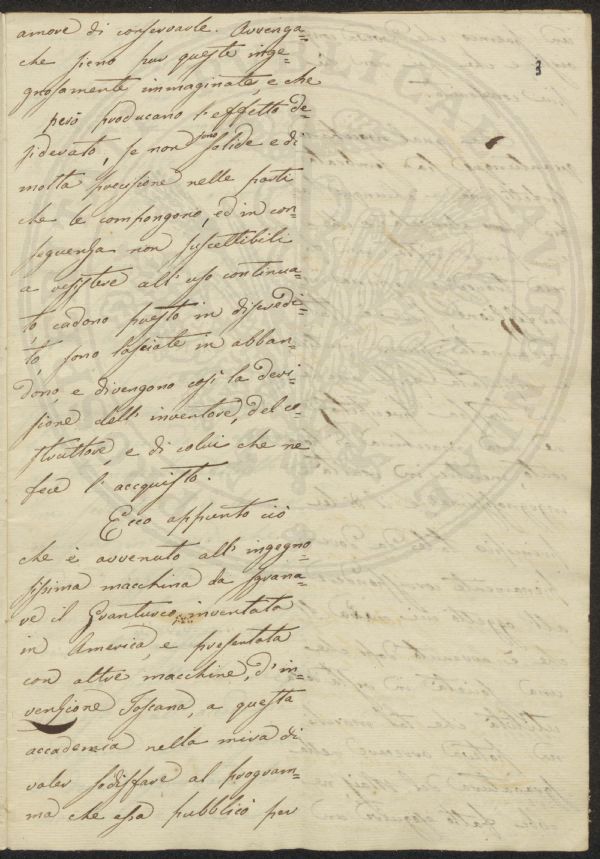 amore di conservarle. Avvenga=
che sieno pur queste inge=
gnosamente immaginate, e che
però producano l'effetto de=
siderato, se non sono solide e di
molta precisione nelle parti
che le compongono, ed in con=
seguenza non suscettibili
a resistere all'uso continua=
to, cadono presto in discredi=
to, sono lasciate in abban=
dono, e divengono così la deri=
sione dell'inventore, del co=
struttore, e di colui che ne
fece l'accquisto.
Ecco appunto ciò
che è avvenuto all'ingegno=
sissima macchina da sgrana=
re il Granturco, inventata
in America, e presentata
con altre macchine, d'in=
venzione Toscana, a questa
accademia nella mira di
voler sodisfare al program=
ma che essa pubblicò per
3